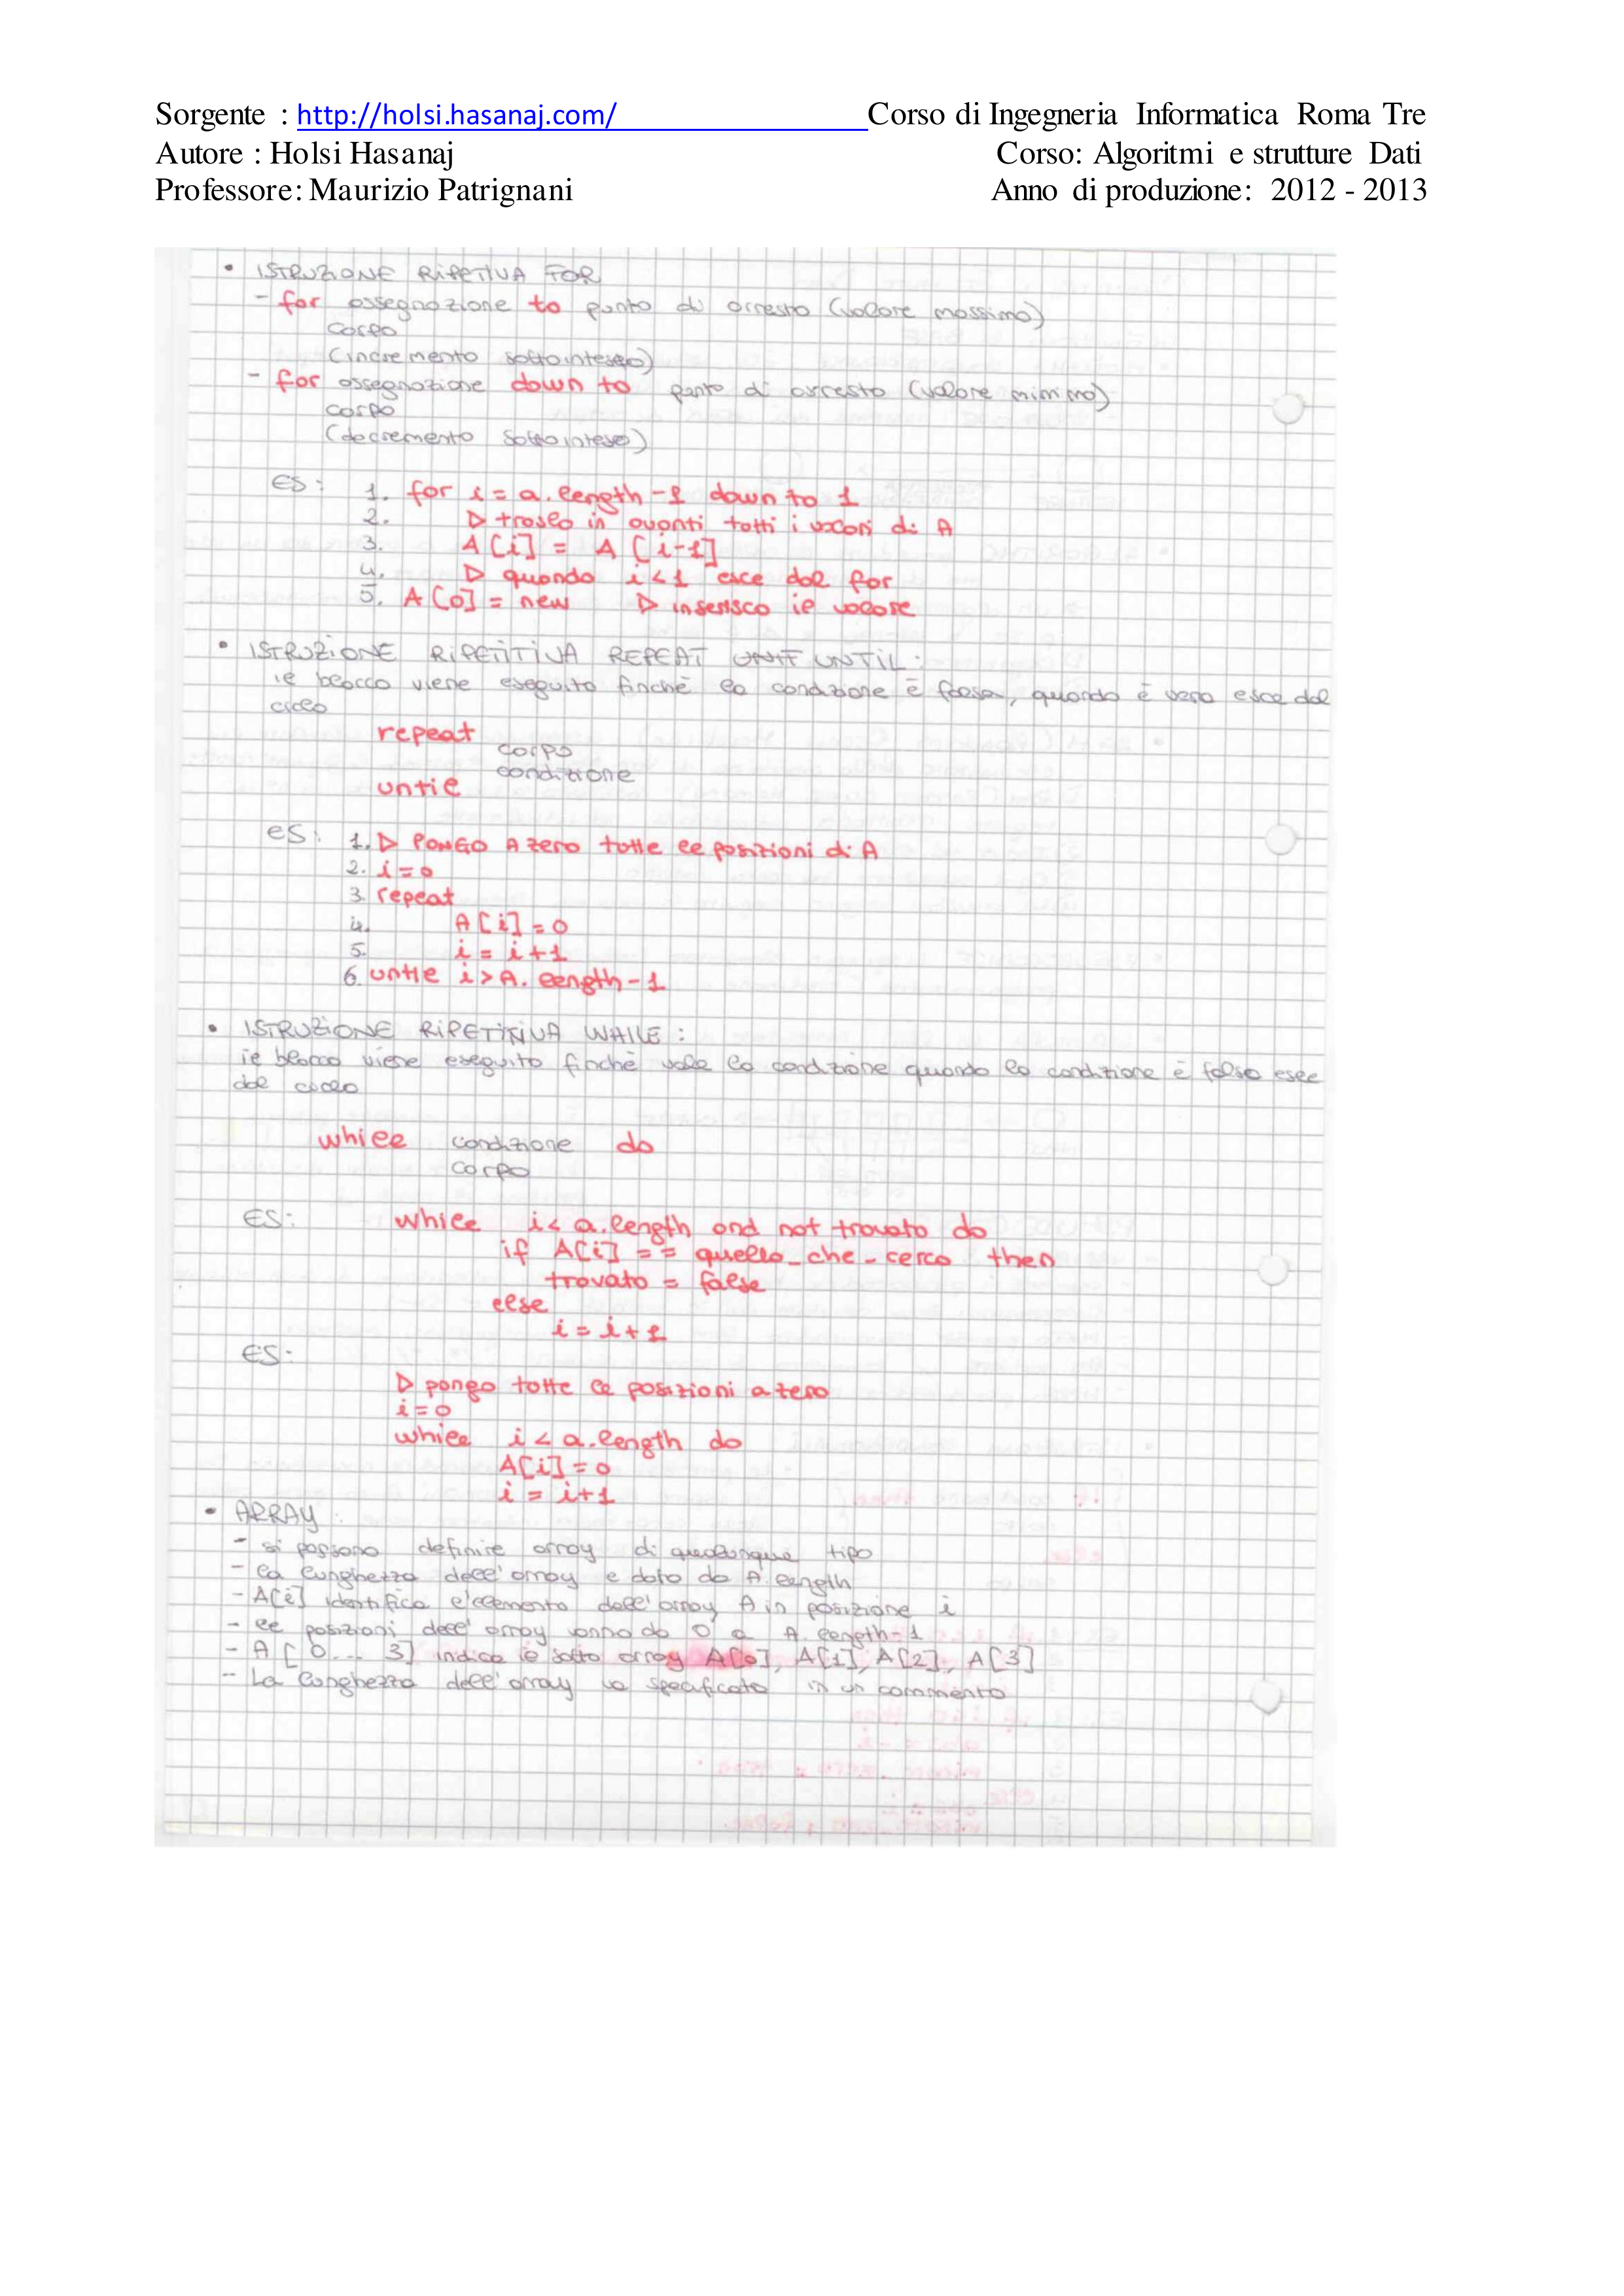 Sorgente : http://holsi.hasanaj.com/ Corso di Ingegneria Informatica Roma Tre
Autore : Holsi Hasanaj Corso: Algoritmi e strutture Dati
Professore: Maurizio Patrignani Anno di produzione: 2012 - 2013
• ISTRUZIONE RIPETIVA FOR
- for assegnazione to punto di arresto (valore massimo)
corpo
(incremento sottointeso)
- for assegnazione down to punto di arresto (valore minimo)
corpo
(decremento sottointeso)
ES: 1. for i = a.length-1 down to 1
2. ▷ traslo in avanti tutti i valori di A
3. A[i] = A[i-1]
4. ▷ quando i<1 esce dal for
5. A[0] = new ▷ inserisco il valore
• ISTRUZIONE RIPETITIVA REPEAT UNTIL:
il blocco viene eseguito finchè la condizione è falsa, quando è vera esce dal
ciclo
repeat
corpo
condizione
until
es: 1. ▷ PONGO A zero tutte le posizioni di A
2. i=0
3. repeat
4. A[i]=0
5. i = i+1
6. until i>A.length-1
• ISTRUZIONE RIPETITIVA WHILE:
il blocco viene eseguito finchè vale la condizione quando la condizione è falsa esce
dal ciclo
while condizione do
corpo
ES: while i< a.length and not trovato do
if A[i] == quello_che_cerco then
trovato = false
else
i = i+1
ES:
▷ pongo tutte le posizioni a zero
i=0
while i < a.length do
A[i]=0
i = i+1
• ARRAY:
- si possono definire array di qualunque tipo
- la lunghezza dell'array e data da A.length
- A[i] identifica l'elemento dell'array A in posizione i
- le posizioni dell'array vanno da 0 a A.length-1
- A[0... 3] indica il sotto array A[0], A[1], A[2], A[3]
- La lunghezza dell'array va specificata in un commento